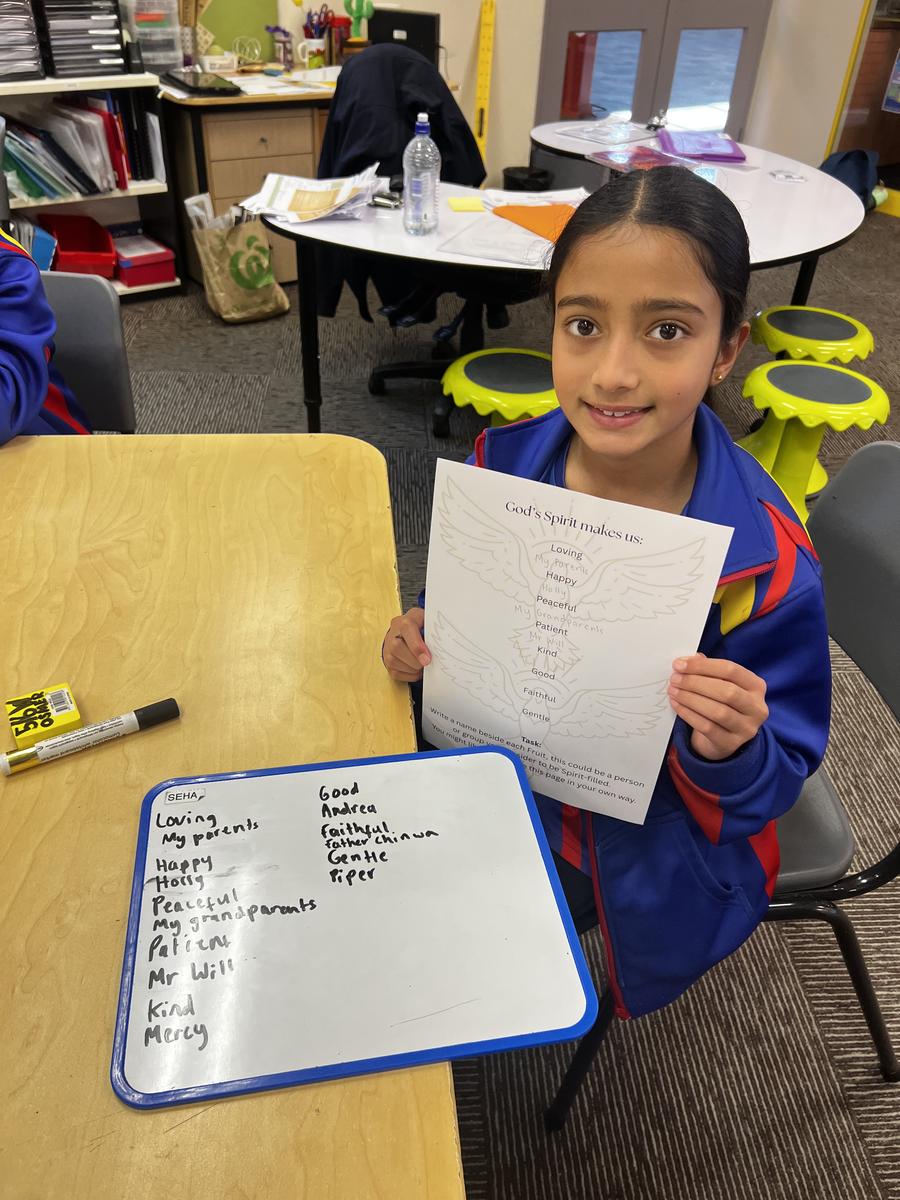 God's Spirit makes us:
Loving
My Parents
Happy
Holly
Peaceful
My Grandparents
Patient
Mr Will
Kind
Good
Faithful
Gentle
Task:
Write a name beside each Fruit, this could be a person
or group you
sider to be Spirit-filled.
You might li
e this page in your own way.
SEHA
Loving
My parents
Happy
Holly
Peaceful
My grandparents
Patient
Mr Will
Kind
Mercy
Good
Andrea
Faithful
Father Chinwa
Gentle
Piper